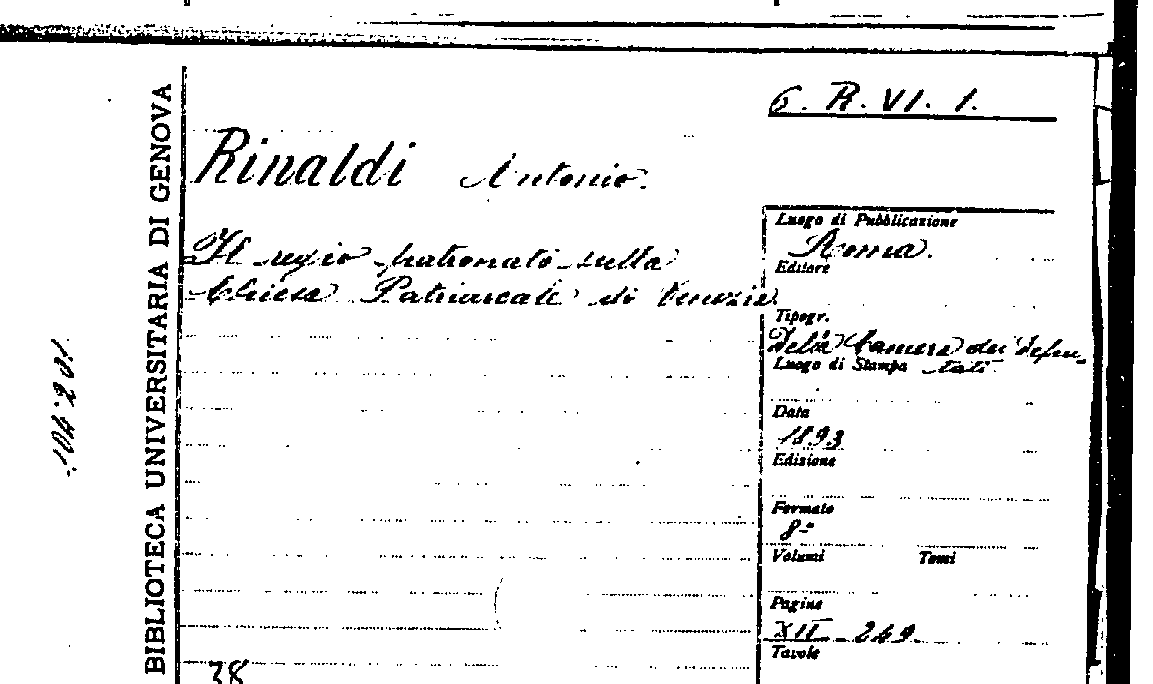 BIBLIOTECA UNIVERSITARIA DI GENOVA
6. R. VI. 1.
Rinaldi Antonio.
Il regio patronato sulla
Chiesa Patriarcale di Venezia
Luogo di Pubblicazione
Roma.
Editore
Tipogr.
Della Camera dei depu-
Luogo di Stampa tati
Data
1893
Edizione
Formato
8º
Volumi Tomi
Pagine
XII-249.
Tavole
38